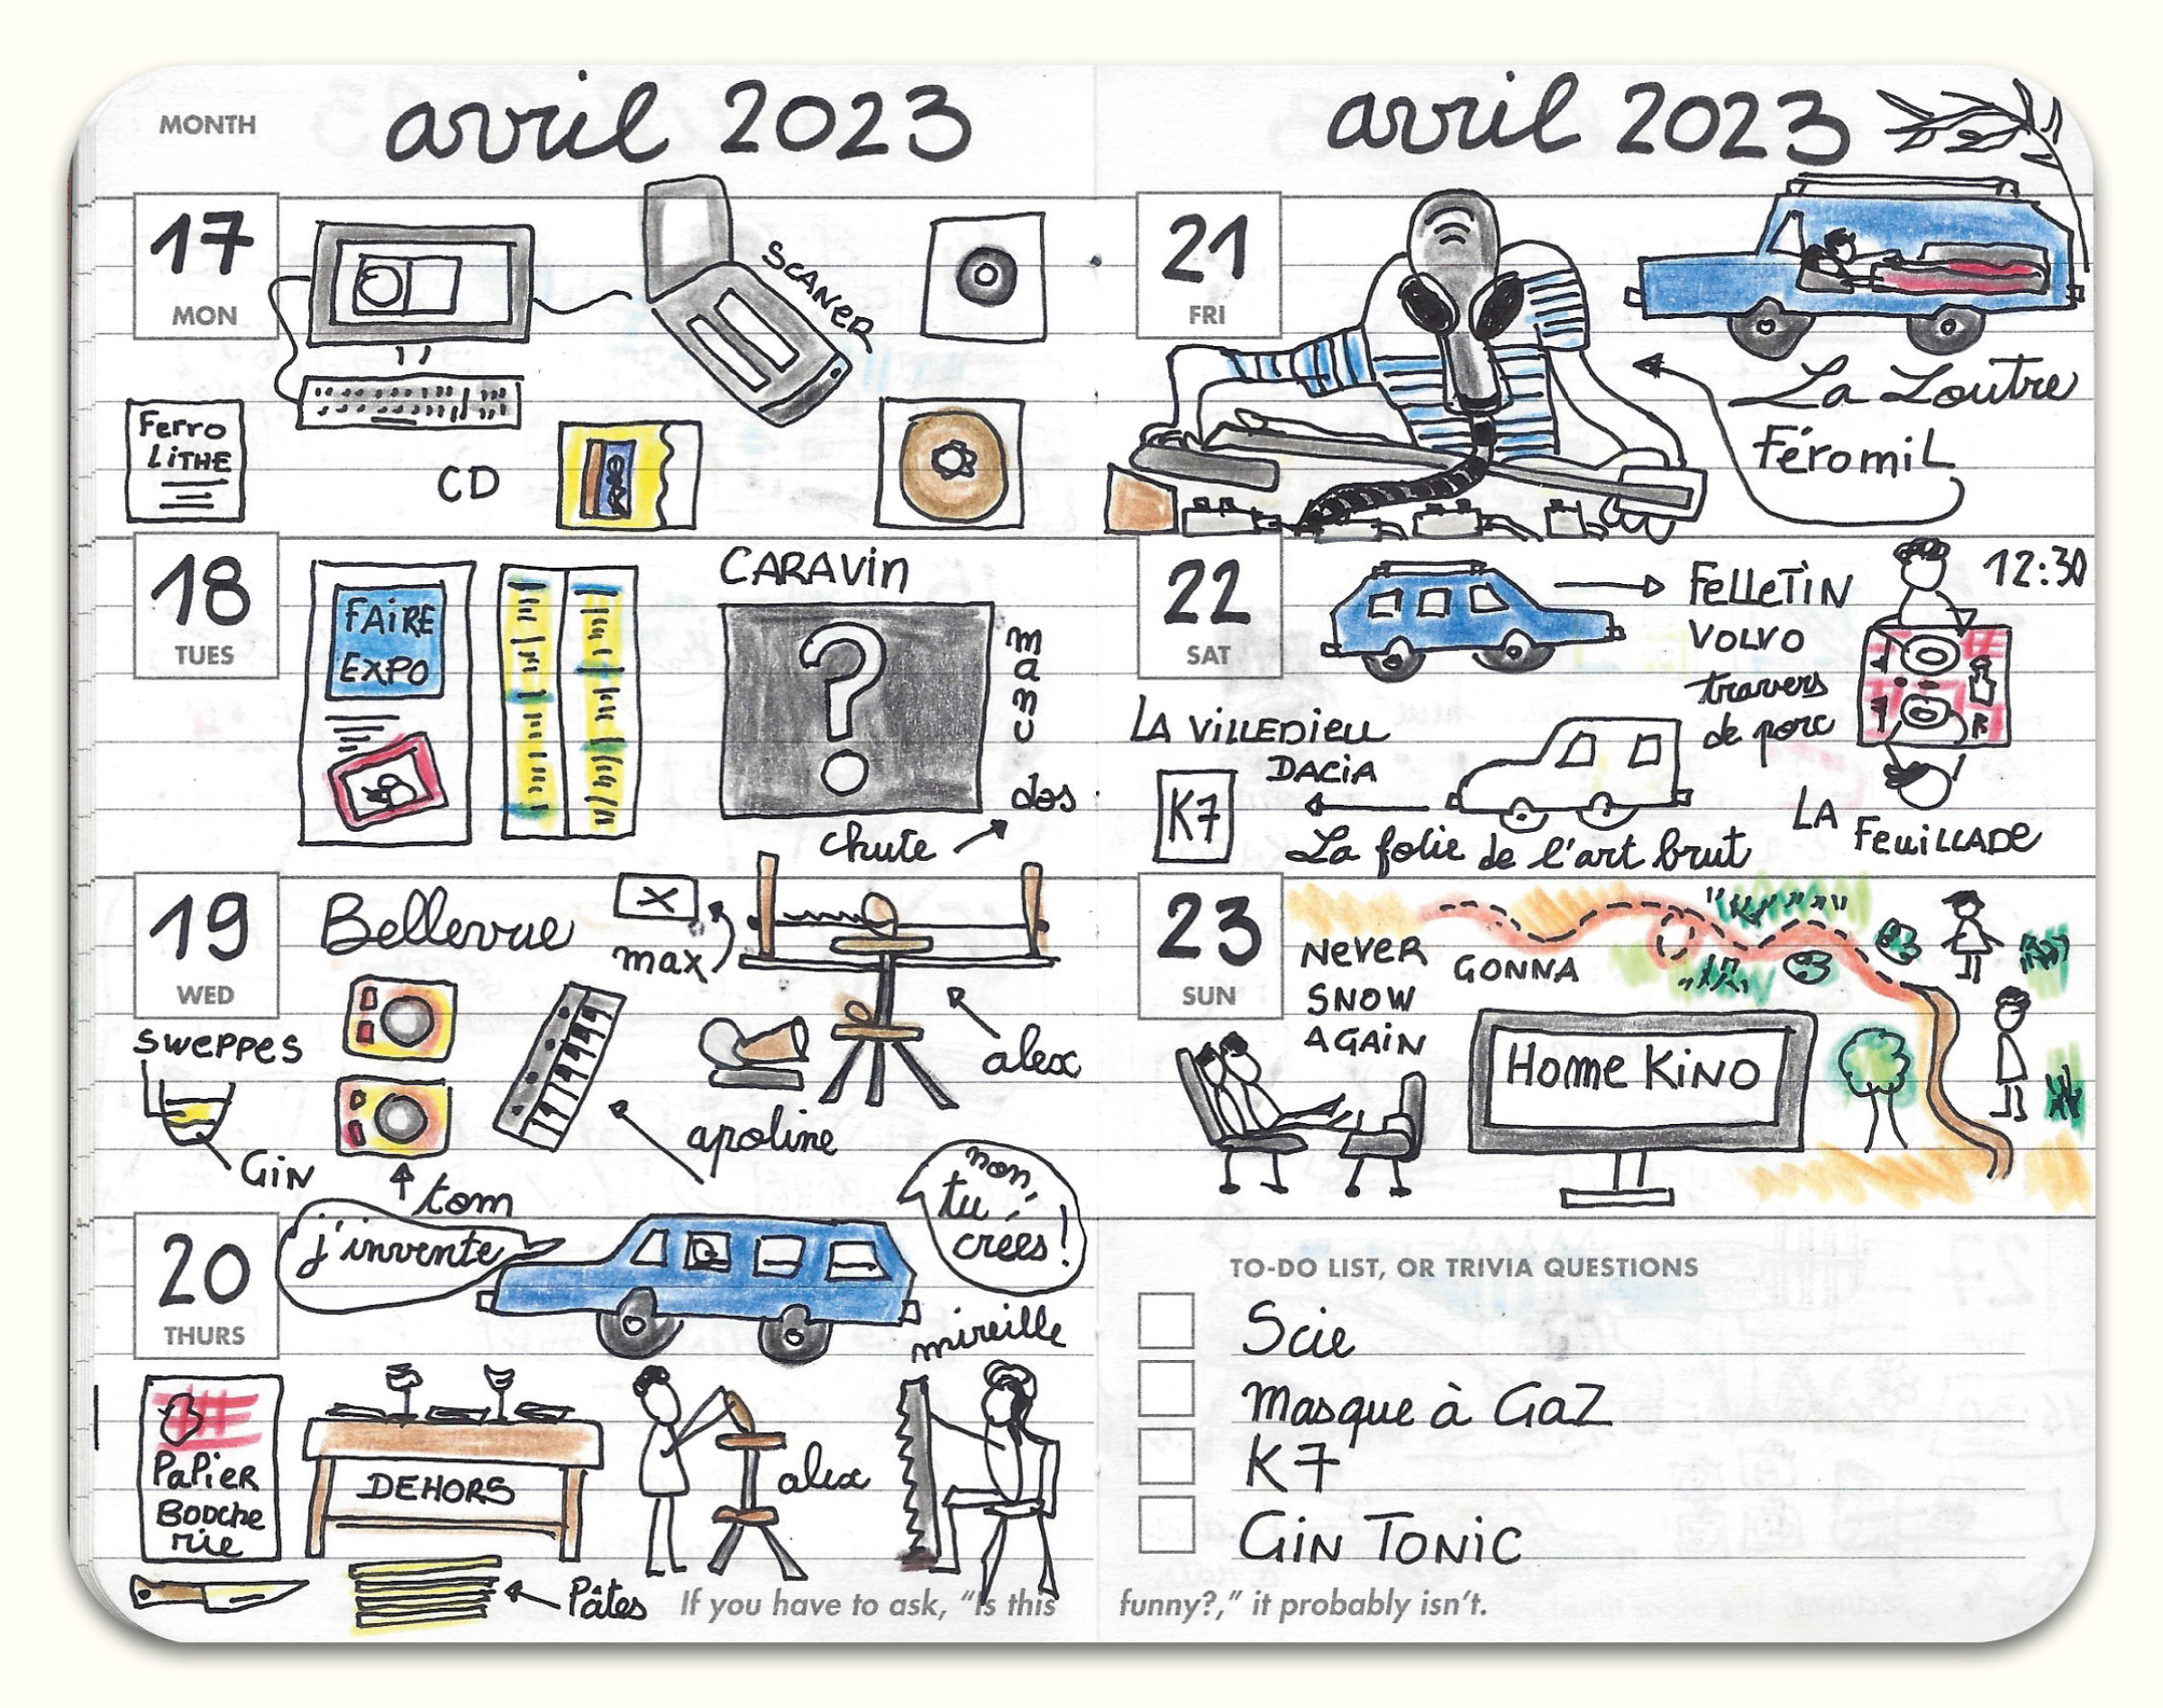 MONTH
avril 2023
17
MON
SCANER
Ferro
LiTHE
CD
18
TUES
FAiRE
EXPO
CARAVin
manu
chute
dos
19
WED
Bellevue
max
alex
SWEPPES
GiN
tom
apoline
20
THURS
j'invente
non,
tu
crées!
mireille
PaPiER
Booche
rie
DEHORS
alex
Pâtes
If you have to ask, “Is this
avril 2023
21
FRI
La Loutre
FéromiL
22
SAT
FelleTiN
VOLVO
travers
de porc
12:30
LA ViLLEDiEU
DACiA
K7
La folie de l'art brut
LA FeuiLLADe
23
SUN
NeVeR
GONNA
SNOW
AGAiN
Home KiNO
TO-DO LIST, OR TRIVIA QUESTIONS
Scie
Masque à GaZ
K7
GiN TONiC
funny?,” it probably isn’t.